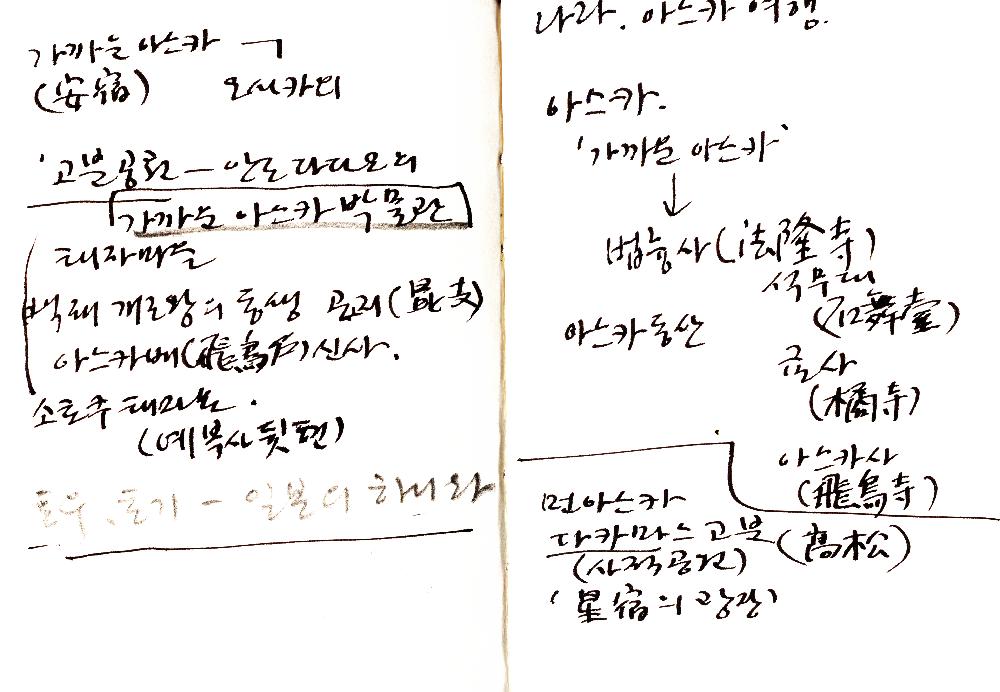 가까운 아스카 ㄱ
(安宿) 오사카의
'고분공원 - 안도 다다오의
가까운 아스카 박물관
태자마을
백제 개로왕의 동생 곤지(昆支)
아스카베(飛鳥戶)신사.
태자묘.
(예복사 뒷편)
토우, 토기 - 일본의 하니와
나라. 아스카 여행.
아스카.
'가까운 아스카'
↓
법륭사(法隆寺)
석무대
(石舞臺)
아스카동산
귤사
(橘寺)
아스카사
(飛鳥寺)
먼 아스카
다카마스 고분 (高松)
(사적공원)
'星宿의 광관'